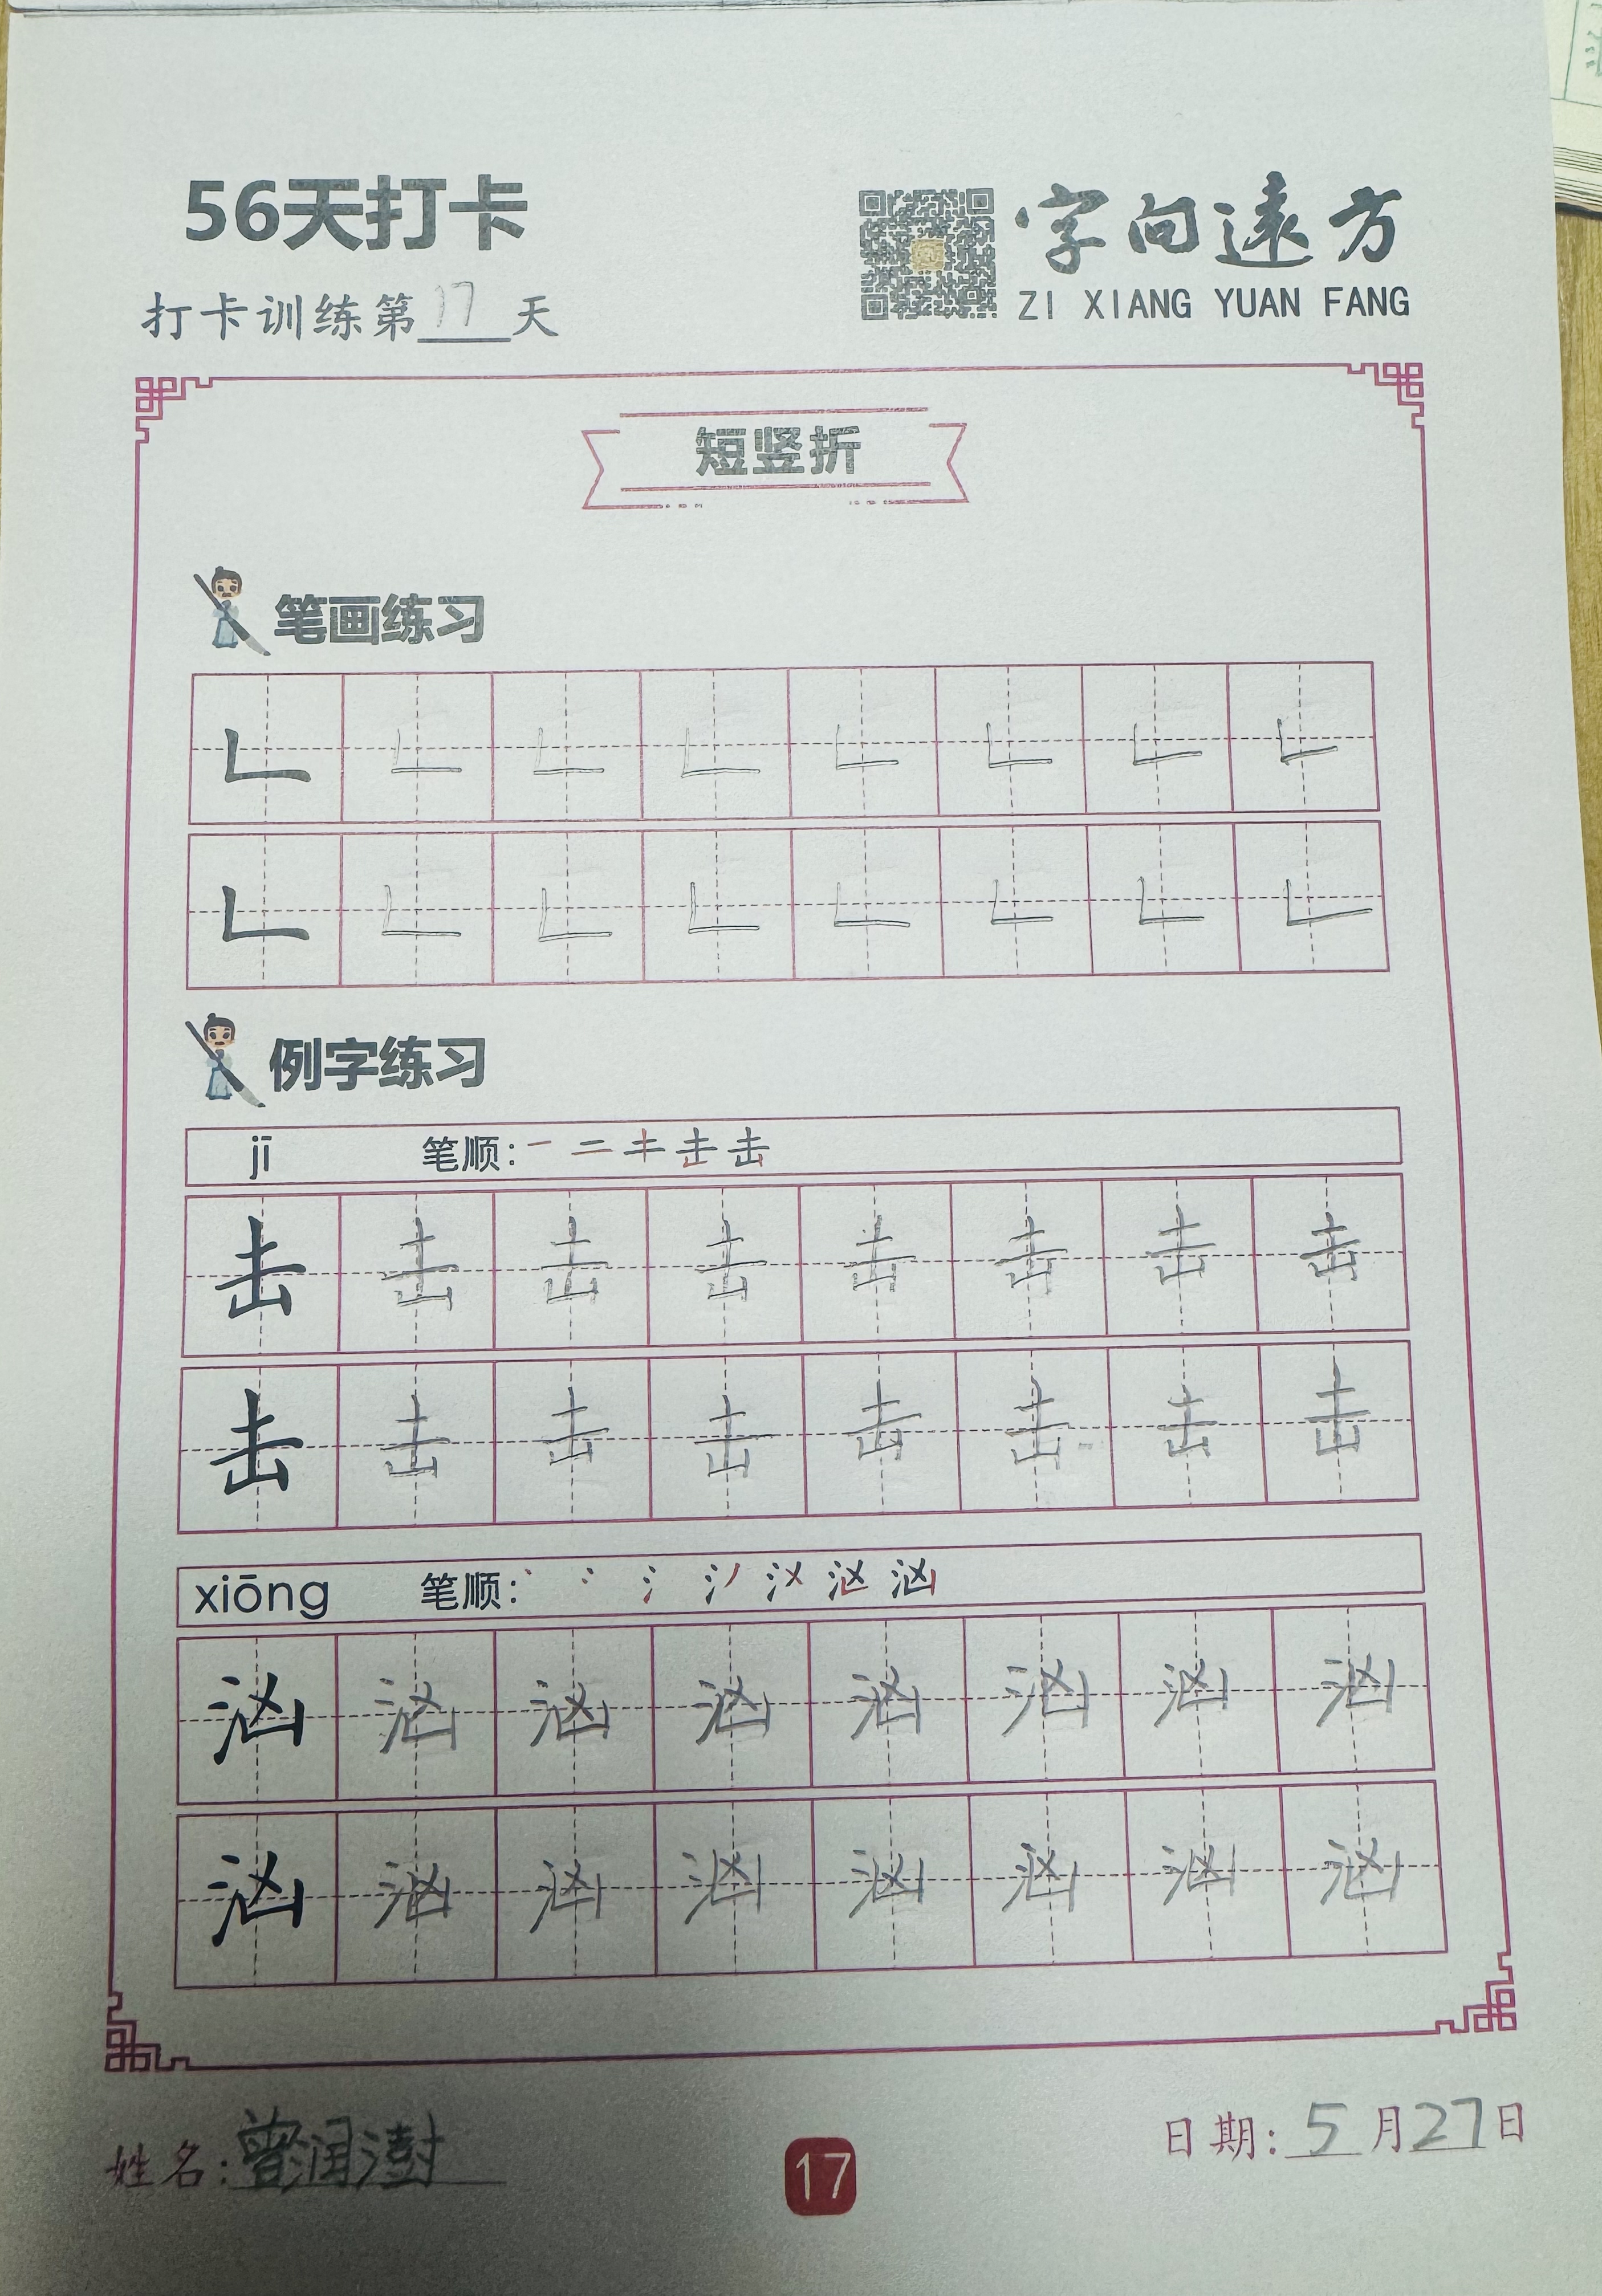 56天打卡
字向遠方
ZI XIANG YUAN FANG
打卡训练第17天
短竖折
笔画练习
𠃊 𠃊 𠃊 𠃊 𠃊 𠃊 𠃊 𠃊
𠃊 𠃊 𠃊 𠃊 𠃊 𠃊 𠃊 𠃊
例字练习
jī 笔顺: 击
击 击 击 击 击 击 击 击
击 击 击 击 击 击 击 击
xiōng 笔顺: 汹
汹 汹 汹 汹 汹 汹 汹 汹
汹 汹 汹 汹 汹 汹 汹 汹
姓名:曾润澍
日期:5月27日
17